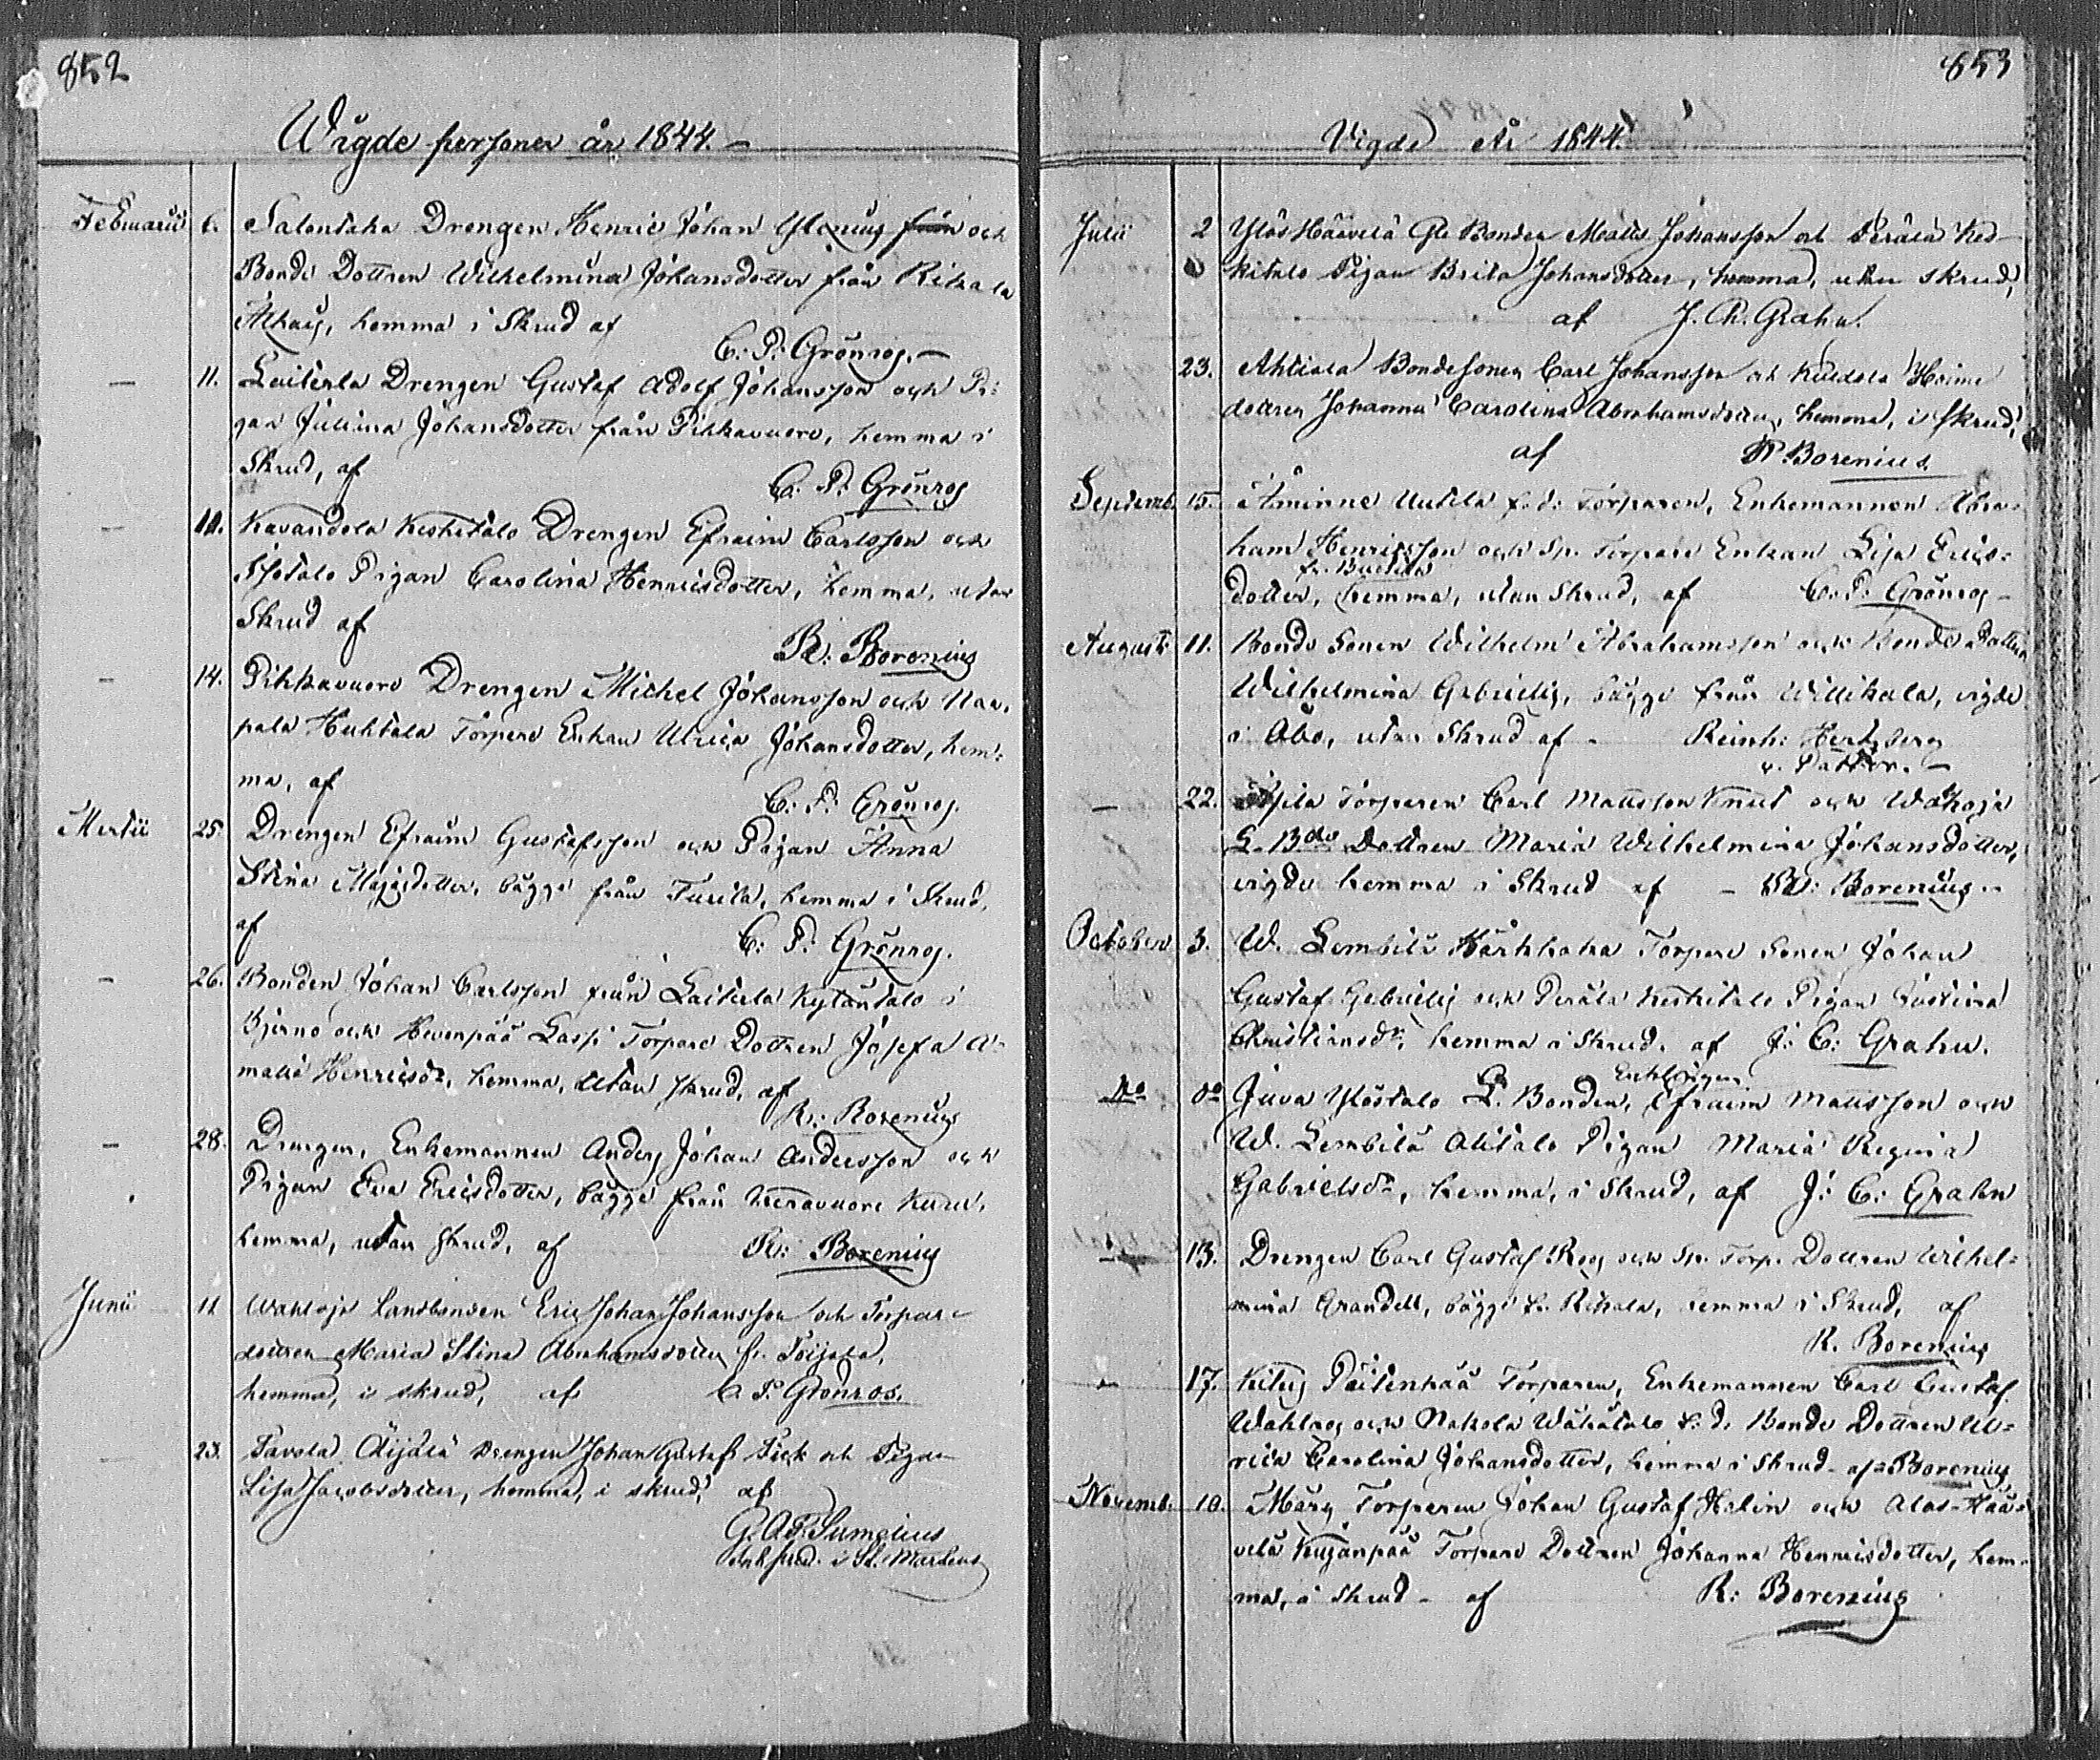 852
Wigde personer år 1844. –
Februarii 6. Salontaka Drengen Henric Johan Ylenius från och
Bonde Dottren Wilhelmina Johansdotter från Rikala
hemma i Skrud af
C: P: Grönros. –
— 11. Laiterla Drengen Gustaf Adolf Johansson och Pi:
gan Juliana Johansdotter från Pihkavuore, hemma i
Skrud, af
C: P: Grönros
— Kavandola Keskitalo Drengen Efraim Carlsson och
Pigan Carolina Henricsdotter, hemma, utan
Skrud af
R: Borenius
— 14. Pihkavuore Drengen Michel Johansson och
Huhtala Torpare Enkan Ulrica Johansdotter, hem:
ma, af
C: P: Grönros.
Martii 25 Drengen Efraim Gustafsson och Pigan Anna
Stina Majasdotter, bägge från hemma i Skrud,
af
C: P: Grönros.
— 26. Bonden Johan Carlsson från Laiterla Kyläntalo i
Bjerno och Hevonpää Lassi Torpare Dottren Josefa A:
malia Henricsdr, hemma, utan skrud, af
R: Borenius
— 28. Drengen, Enkemannen Anders Johan Andersson och
Pigan Eva Ericsdotter, bägge från
hemma, utan skrud, af R: Borenius
Junii 11 Wahloja Landbonden Eric Johan Johansson och Torpare
dottren Maria Stina Abrahamsdotter fr. Toijala,
hemma, i skrud, af C P Grönros.
— 23. Tavola Äijälä Drengen Johan Gustaf och Pigan
Lisa Jacobsdotter, hemma, i skrud, af
G. A. P. Sumelius
i St. Martens
653
Vigde År 1844.
Julii 2 Ylös Häävelä Gle Bonden Matts Johansson och Peräla Kes
kitalo Pigan Brita Johansdotter, hemma, utan skrud,
af J. Ch. Grahn.
23. Ahtiala Bondesonen Carl Johansson och
dottren Johanna Carolina Abrahamsdotter, hemma, i skrud,
af R. Borenius.
Septemb. 15. Åminne Uutela f. d. Torparen, Enkemannen Abra:
ham Henricsson och Sp. Torpare Enkan Lisa Erics:
dotter, hemma, utan Skrud, af C: P: Grönros –
Augusti 11. Bonde Sonen Wilhelm Abrahamsson och Bonde Dottren
Wilhelmina Gabrielis, bägge från Willikala, vigde
i Åbo, utan Skrud af – Reinh: Hertzberg
v. Pastor. –
— 22. Torparen Carl Mattsson Knut och Wahoja
L. Bde Dottren Maria Wilhelmina Johansdotter,
vigde hemma i Skrud af – R: Borenius –
October 3. W. Lembilä Kärkkaka Torpare Sonen Johan
Gustaf Gabrielis och Peräla Keskitalo Pigan Justina
Christiansdr, hemma i Skrud. af J: C: Grahn.
Enklingen
do do Juva Ylöstalo L. Bonden, Efraim Mattsson och
W. Lembilä Alitalo Pigan Maria Regina
Gabrielsdr, hemma, i Skrud, af J: C: Grahn
— 13. Drengen Carl Gustaf Roos och Sp. Torp. Dottren Wilhel:
mina Grandell, bägge fr. Rikala, hemma i Skrud, af
R. Borenius
— 17. Torparen, Enkemannen Carl Gustaf
Wahlros och Nokola Wähätalo f. d. Bonde Dottren Ul:
rica Carolina Johansdotter, hemma i Skrud – af R: Borenius
Novemb. 10. Märy Torparen Johan Gustaf Malin och Alas-Hää:
velä Kujanpää Torpare Dottren Johanna Henricsdotter, hem:
ma, i Skrud – af R: Borenius